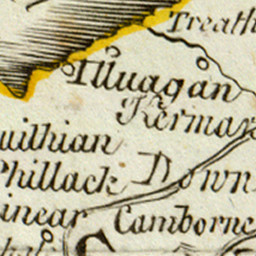 Treath
Illuagan
Kermar
uithian
Phillack Down
inear Camborne